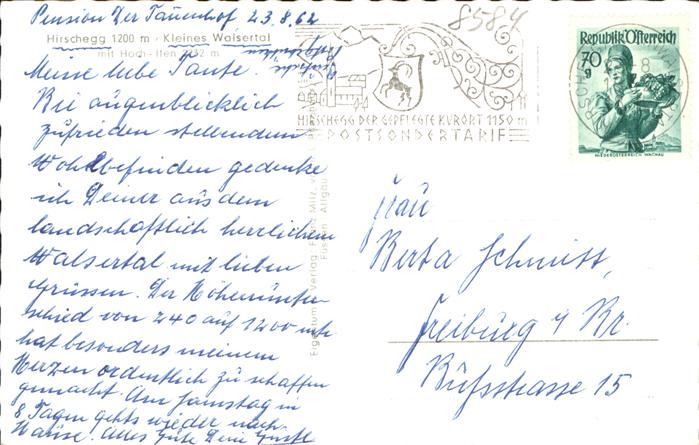 Pension Der Tannhof 23.8.62
Hirschegg 1200 m - Kleines Walsertal
mit Hoch-Ifen 2232 m
Meine liebe Tante.
Bei augenblicklich
zufrieden stellendem
Wohlbefinden gedenke
ich Deiner aus dem
landschaftlich herrlichen
Walsertal mit lieben
Grüssen. Der Höhenunter-
schied von 240 auf 1200 mtr
hat besonders meinem
Herzen ordentlich zu schaffen
gemacht. Am Samstag in
8 Tagen gehts wieder nach
Hause. Alles Gute Deine
8584
HIRSCHEGG DER GEPFLEGTE KURORT 1150 m
POSTSONDERTARIF
Republik Österreich
70
g
NIEDERÖSTERREICH WACHAU
Eigentum u. Verlag
Füssen Allgäu
Frau
Berta Schmitt,
Freiburg i Br.
Bußstrasse 15